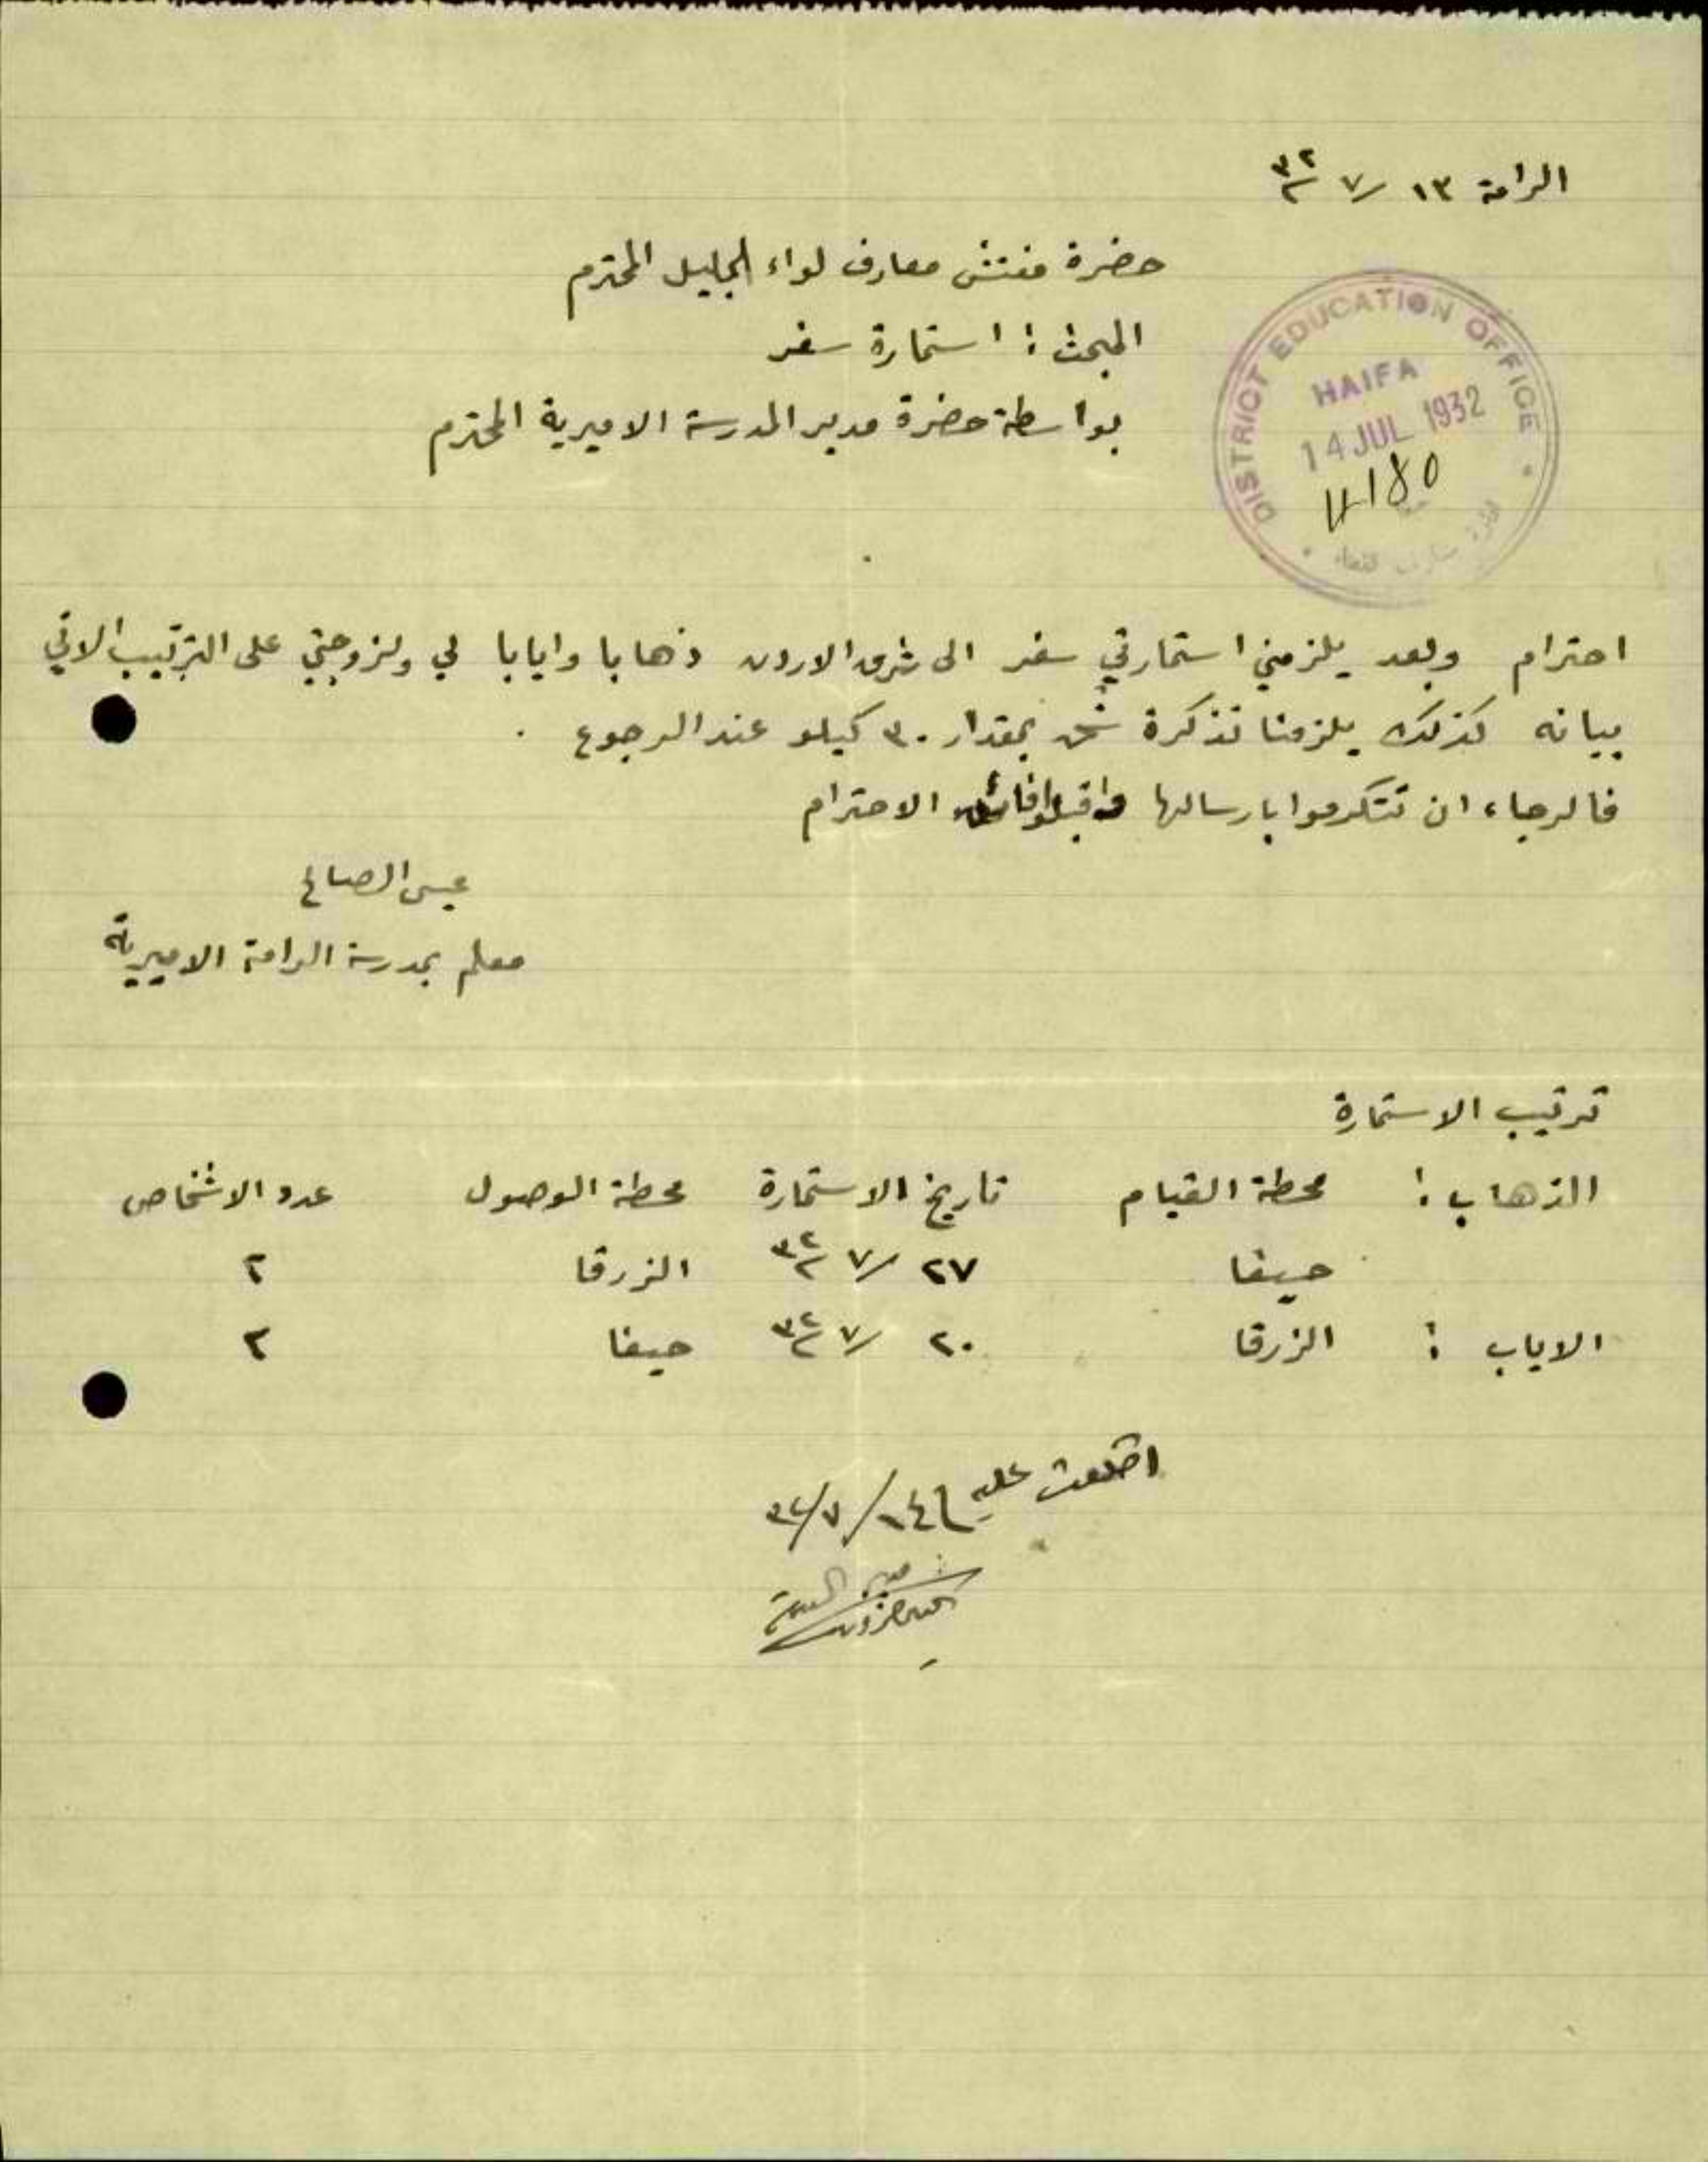 الرامة ١٣ /٧ ٣٢
حضرة مفتش معارف لواء الجليل المحترم
المبحث : استمارة سفر
بواسطة حضرة مدير المدرسة الاميرية المحترم
DISTRICT EDUCATION OFFICE
HAIFA
14 JUL 1932
4180
احترام وبعد يلزمني استمارتي سفر الى شرق الاردن ذهابا وايابا لي ولزوجتي على الترتيب الاتي
بيانه كذلك يلزمنا تذكرة شحن بمقدار ٣٠ كيلو عند الرجوع .
فالرجاء ان تتكرموا بارسالها واقبلوا فائق الاحترام
عيسى الصالح
معلم بمدرسة الرامة الاميرية
ترتيب الاستمارة
الذهاب : محطة القيام تاريخ الاستمارة محطة الوصول عدد الاشخاص
حيفا ٢٧ /٧ ٣٢ الزرقا ٢
الاياب : الزرقا ٢٠ /٧ ٣٢ حيفا ٢
اطلعت عليه ١٤/٧/٣٢
مدير المدرسة